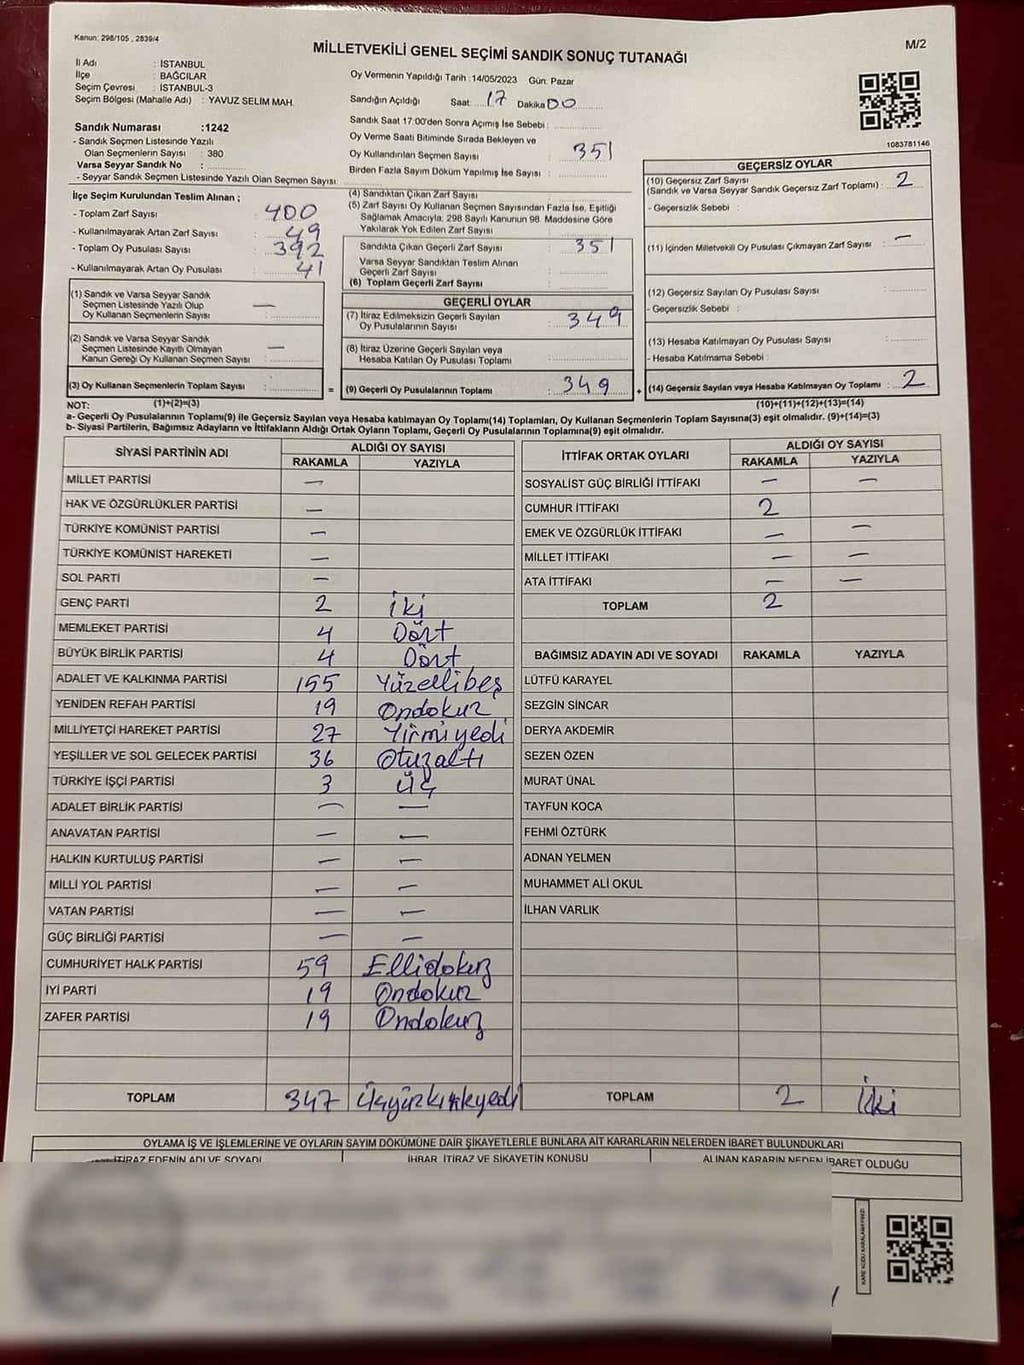 Kanun: 298/105 , 2839/4
MİLLETVEKİLİ GENEL SEÇİMİ SANDIK SONUÇ TUTANAĞI
M/2
İl Adı : İSTANBUL
İlçe : BAĞCILAR
Seçim Çevresi : İSTANBUL-3
Seçim Bölgesi (Mahalle Adı) : YAVUZ SELİM MAH.
Sandık Numarası :1242
- Sandık Seçmen Listesinde Yazılı
Olan Seçmenlerin Sayısı : 380
Varsa Seyyar Sandık No :
- Seyyar Sandık Seçmen Listesinde Yazılı Olan Seçmen Sayısı
İlçe Seçim Kurulundan Teslim Alınan ;
- Toplam Zarf Sayısı : 400
- Kullanılmayarak Artan Zarf Sayısı : 49
- Toplam Oy Pusulası Sayısı : 392
- Kullanılmayarak Artan Oy Pusulası : 41
(1) Sandık ve Varsa Seyyar Sandık
Seçmen Listesinde Yazılı Olup
Oy Kullanan Seçmenlerin Sayısı : —
(2) Sandık ve Varsa Seyyar Sandık
Seçmen Listesinde Kayıtlı Olmayan
Kanun Gereği Oy Kullanan Seçmen Sayısı : —
(3) Oy Kullanan Seçmenlerin Toplam Sayısı :
(1)+(2)=(3)
Oy Vermenin Yapıldığı Tarih :14/05/2023 Gün: Pazar
Sandığın Açıldığı Saat: 17 Dakika 00
Sandık Saat 17:00'den Sonra Açımış İse Sebebi :
Oy Verme Saati Bitiminde Sırada Bekleyen ve
Oy Kullandırılan Seçmen Sayısı : 351
Birden Fazla Sayım Döküm Yapılmış İse Sayısı :
(4) Sandıktan Çıkan Zarf Sayısı
(5) Zarf Sayısı Oy Kullanan Seçmen Sayısından Fazla İse, Eşitliği
Sağlamak Amacıyla; 298 Sayılı Kanunun 98. Maddesine Göre
Yakılarak Yok Edilen Zarf Sayısı :
Sandıkta Çıkan Geçerli Zarf Sayısı : 351
Varsa Seyyar Sandıktan Teslim Alınan
Geçerli Zarf Sayısı
(6) Toplam Geçerli Zarf Sayısı
GEÇERLİ OYLAR
(7) İtiraz Edilmeksizin Geçerli Sayılan
Oy Pusulalarının Sayısı : 349
(8) İtiraz Üzerine Geçerli Sayılan veya
Hesaba Katılan Oy Pusulası Toplamı :
= (9) Geçerli Oy Pusulalarının Toplamı : 349 +
1083781146
GEÇERSİZ OYLAR
(10) Geçersiz Zarf Sayısı
(Sandık ve Varsa Seyyar Sandık Geçersiz Zarf Toplamı) : 2
- Geçersizlik Sebebi :
(11) İçinden Milletvekili Oy Pusulası Çıkmayan Zarf Sayısı : —
(12) Geçersiz Sayılan Oy Pusulası Sayısı :
- Geçersizlik Sebebi :
(13) Hesaba Katılmayan Oy Pusulası Sayısı :
- Hesaba Katılmama Sebebi :
(14) Geçersiz Sayılan veya Hesaba Katılmayan Oy Toplamı : 2
(10)+(11)+(12)+(13)=(14)
NOT:
a- Geçerli Oy Pusulalarının Toplamı(9) ile Geçersiz Sayılan veya Hesaba katılmayan Oy Toplamı(14) Toplamları, Oy Kullanan Seçmenlerin Toplam Sayısına(3) eşit olmalıdır. (9)+(14)=(3)
b- Siyasi Partilerin, Bağımsız Adayların ve İttifakların Aldığı Ortak Oyların Toplamı, Geçerli Oy Pusulalarının Toplamına(9) eşit olmalıdır.
SİYASİ PARTİNİN ADI ALDIĞI OY SAYISI
RAKAMLA YAZIYLA
MİLLET PARTİSİ —
HAK VE ÖZGÜRLÜKLER PARTİSİ —
TÜRKİYE KOMÜNİST PARTİSİ —
TÜRKİYE KOMÜNİST HAREKETİ —
SOL PARTİ —
GENÇ PARTİ 2 iki
MEMLEKET PARTİSİ 4 Dört
BÜYÜK BİRLİK PARTİSİ 4 Dört
ADALET VE KALKINMA PARTİSİ 155 Yüzellibeş
YENİDEN REFAH PARTİSİ 19 Ondokuz
MİLLİYETÇİ HAREKET PARTİSİ 27 Yirmiyedi
YEŞİLLER VE SOL GELECEK PARTİSİ 36 Otuzaltı
TÜRKİYE İŞÇİ PARTİSİ 3 Üç
ADALET BİRLİK PARTİSİ — —
ANAVATAN PARTİSİ — —
HALKIN KURTULUŞ PARTİSİ — —
MİLLİ YOL PARTİSİ — —
VATAN PARTİSİ — —
GÜÇ BİRLİĞİ PARTİSİ — —
CUMHURİYET HALK PARTİSİ 59 Ellidokuz
İYİ PARTİ 19 Ondokuz
ZAFER PARTİSİ 19 Ondokuz
TOPLAM 347 Üçyüzkırkyedi
İTTİFAK ORTAK OYLARI ALDIĞI OY SAYISI
RAKAMLA YAZIYLA
SOSYALİST GÜÇ BİRLİĞİ İTTİFAKI — —
CUMHUR İTTİFAKI 2
EMEK VE ÖZGÜRLÜK İTTİFAKI — —
MİLLET İTTİFAKI — —
ATA İTTİFAKI — —
TOPLAM 2
BAĞIMSIZ ADAYIN ADI VE SOYADI RAKAMLA YAZIYLA
LÜTFÜ KARAYEL
SEZGİN SİNCAR
DERYA AKDEMİR
SEZEN ÖZEN
MURAT ÜNAL
TAYFUN KOCA
FEHMİ ÖZTÜRK
ADNAN YELMEN
MUHAMMET ALİ OKUL
İLHAN VARLIK
TOPLAM 2 İki
OYLAMA İŞ VE İŞLEMLERİNE VE OYLARIN SAYIM DÖKÜMÜNE DAİR ŞİKAYETLERLE BUNLARA AİT KARARLARIN NELERDEN İBARET BULUNDUKLARI
İTİRAZ EDENİN ADI VE SOYADI İHBAR, İTİRAZ VE ŞİKAYETİN KONUSU ALINAN KARARIN NEDEN İBARET OLDUĞU
KARE KODU KARALAMAYINIZ!